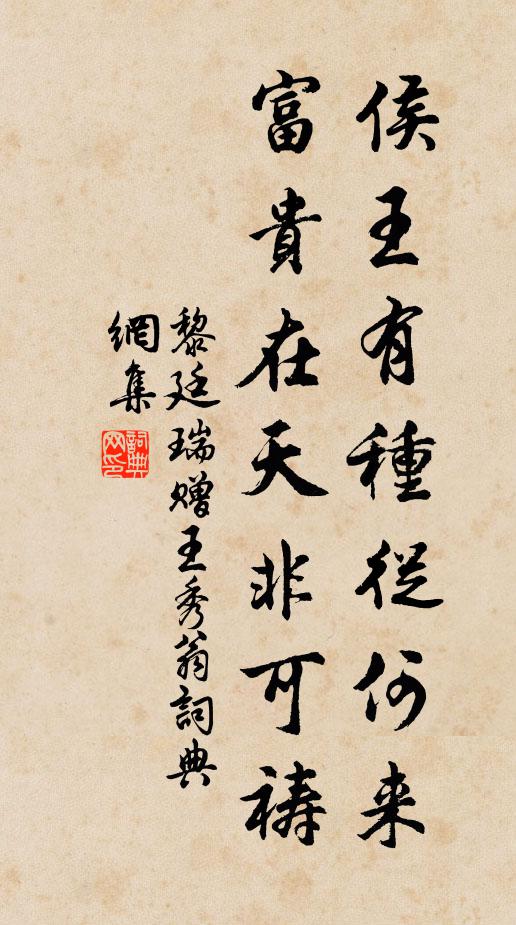 侯王有種從何来
富貴在天非可禱
黎廷瑞贈王秀翁詞典
網集
詞典
网印